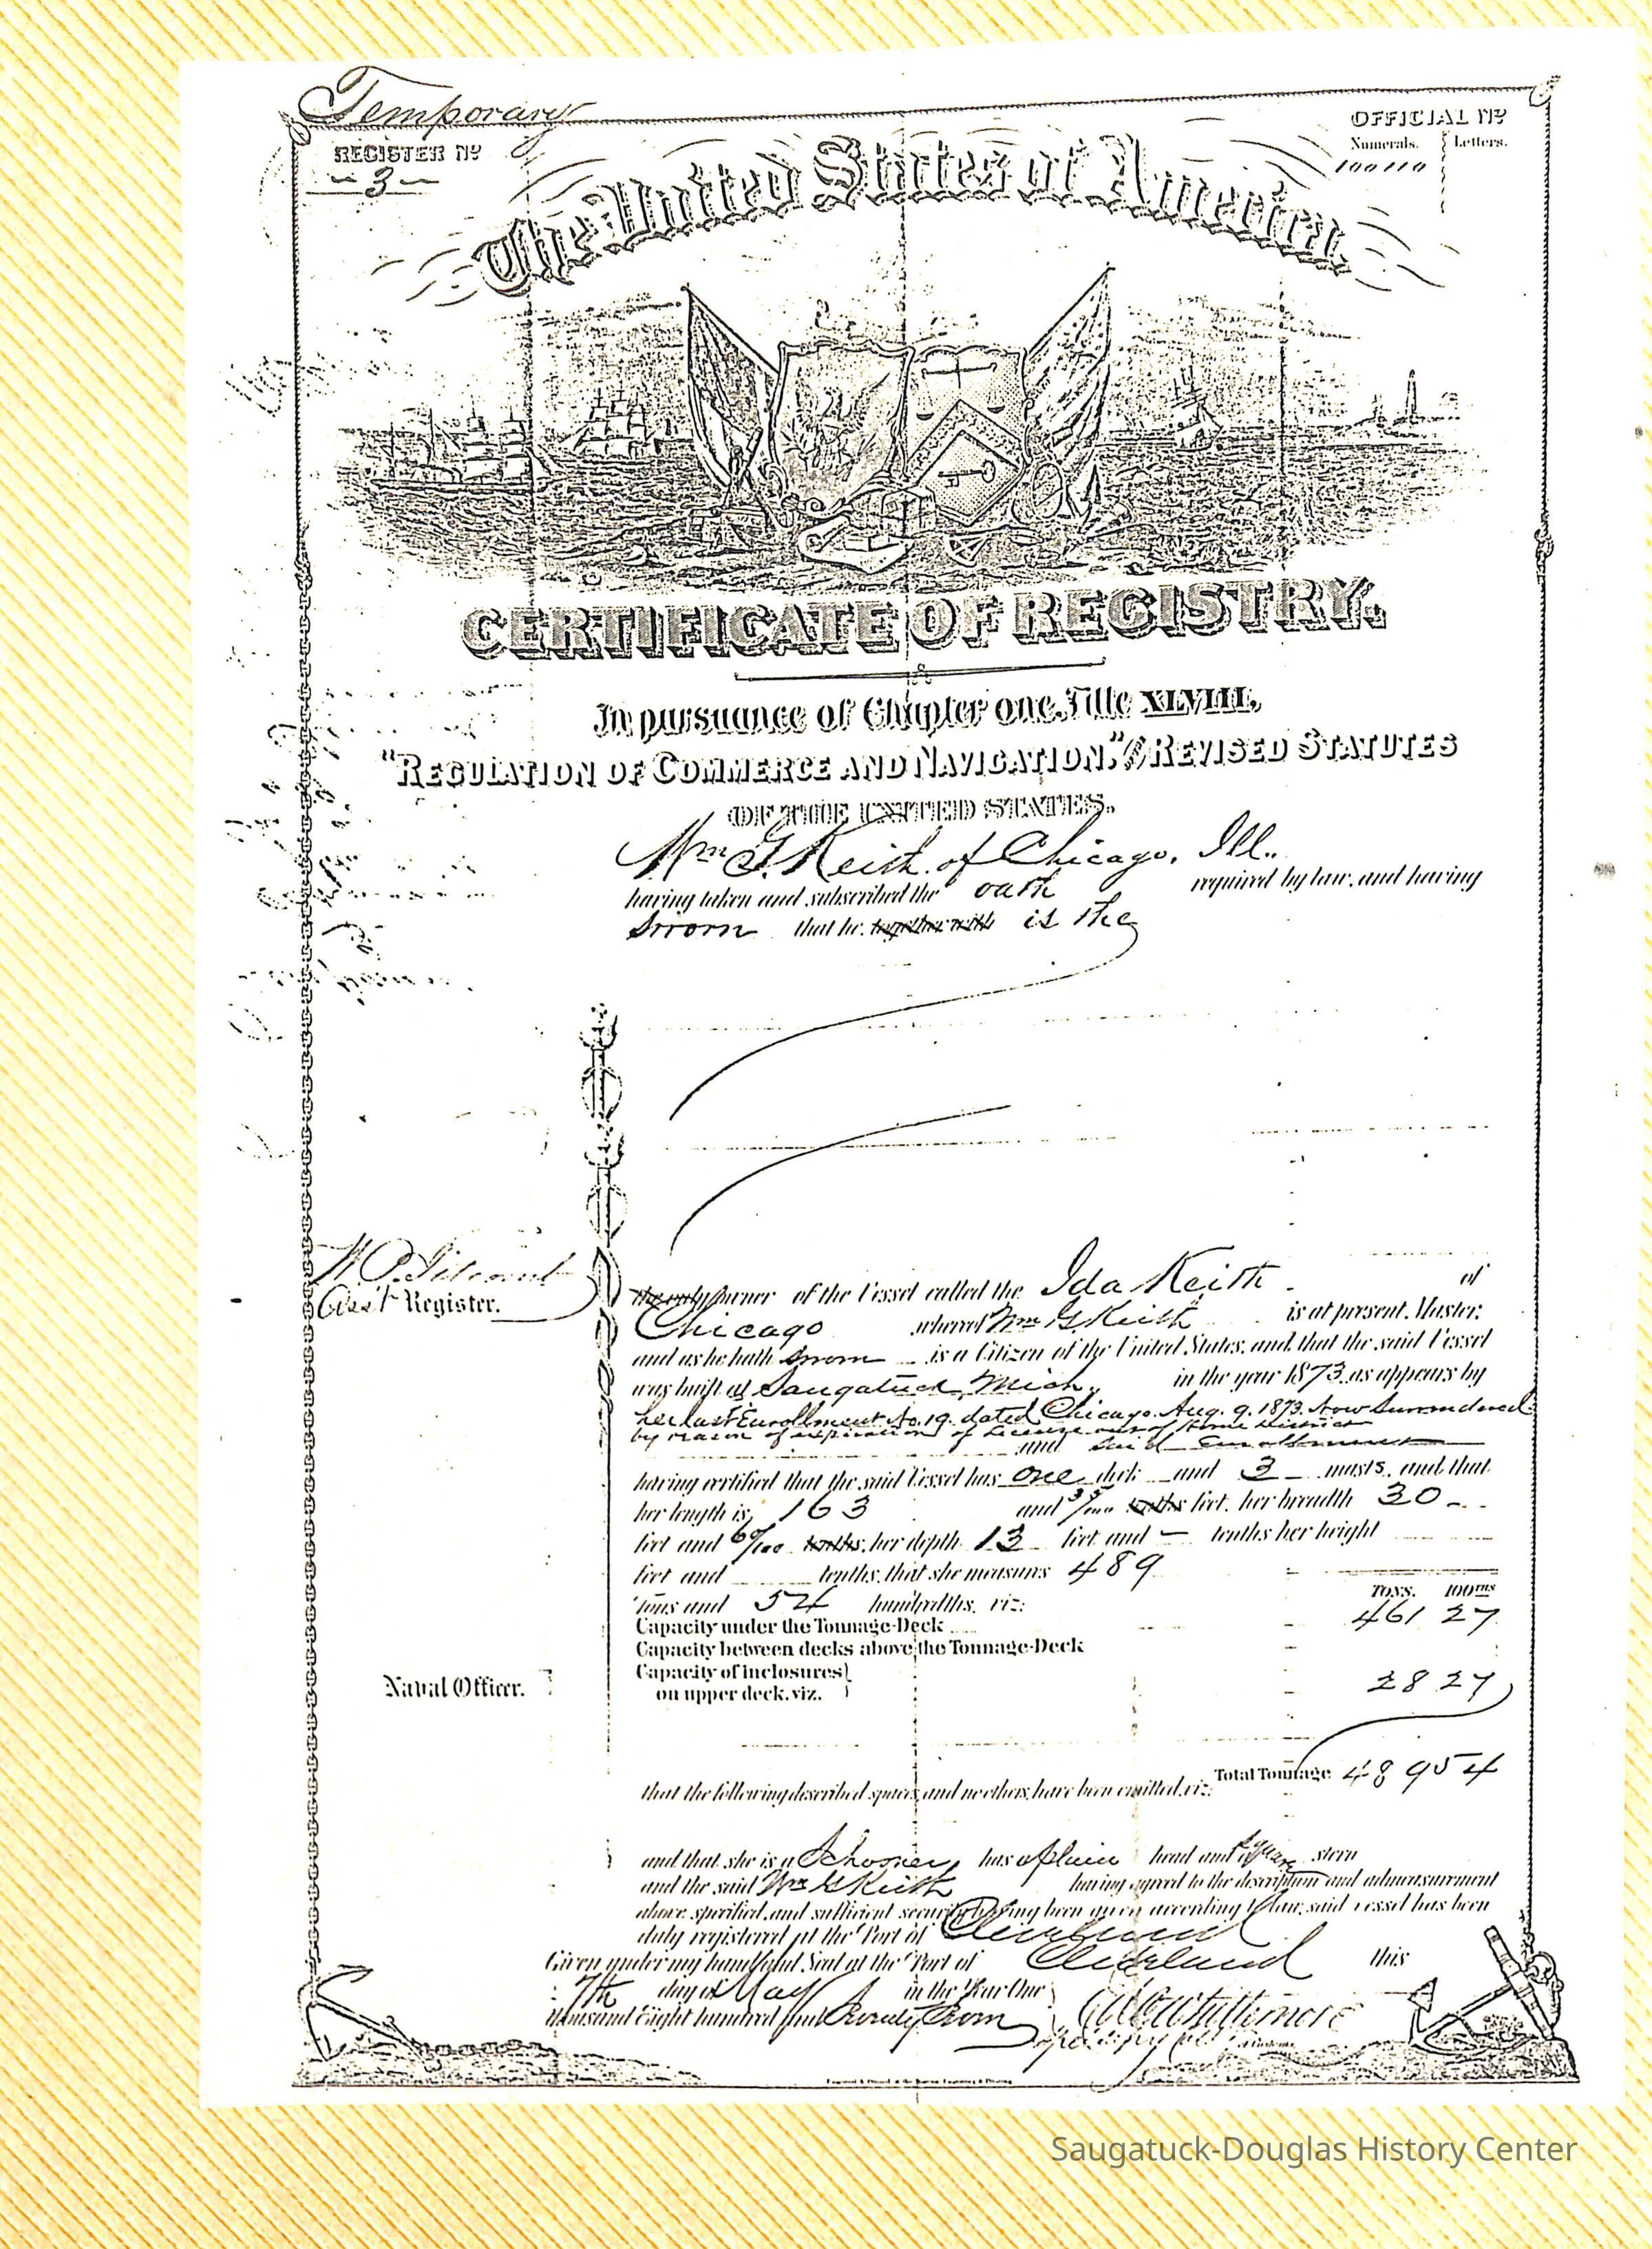 Temporary
REGISTER No
3
OFFICIAL No
Numerals. Letters.
100110
The United States of America,
CERTIFICATE OF REGISTRY.
In pursuance of Chapter one, Title XLVIII,
"REGULATION OF COMMERCE AND NAVIGATION," REVISED STATUTES
OF THE UNITED STATES.
Wm G. Keith of Chicago, Ill.
having taken and subscribed the oath required by law, and having
sworn that he together with is the
Ass't Register.
the only owner of the Vessel called the Ida Keith of
Chicago whereof Wm G. Keith is at present Master,
and as he hath sworn is a Citizen of the United States, and that the said Vessel
was built at Saugatuck, Mich. in the year 1873 as appears by
her last Enrollment No. 19. dated Chicago Aug. 9. 1873. Now Surrendered
by reason of expiration of License out of Home District
and said Enrollment
having certified that the said Vessel has one deck and 3 masts, and that
her length is 163 and 35/100 tenths feet, her breadth 30
feet and 60/100 tenths, her depth 13 feet and – tenths her height
feet and tenths, that she measures 489
Tons and 54 hundredths, viz:
TONS. 100ths
Capacity under the Tonnage-Deck 461 27
Capacity between decks above the Tonnage-Deck
Capacity of inclosures
on upper deck, viz. 28 27
Naval Officer.
Total Tonnage 489 54
that the following described spaces, and no others, have been omitted, viz:
and that she is a Schooner, has a plain head and a square stern
and the said Wm G Keith having agreed to the description and admeasurement
above specified, and sufficient security having been given according to law, said vessel has been
duly registered at the Port of Cleveland
Given under my hand and Seal at the Port of Cleveland this
7th day of May in the Year One
thousand Eight hundred and Seventy
Saugatuck-Douglas History Center